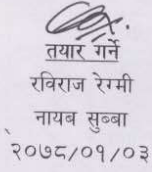 तयार गर्ने
रविराज रेग्मी
नायब सुब्बा
२०७८/०१/०३